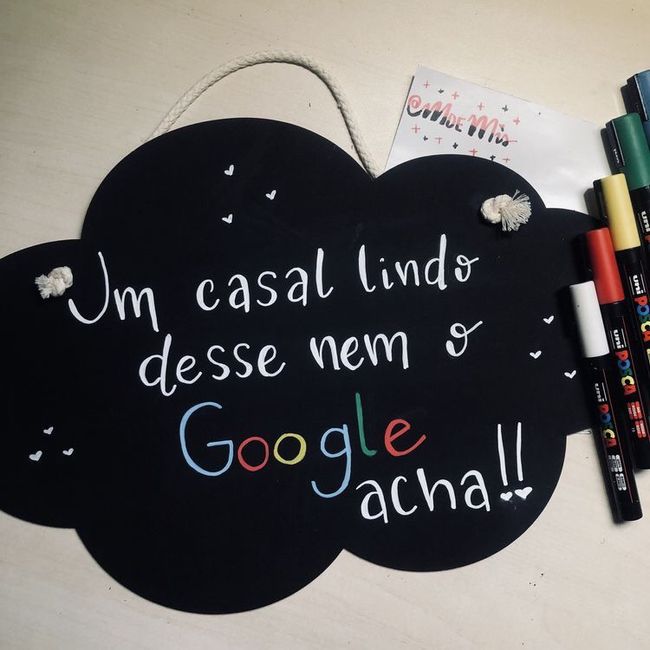 @MDEMis
Um casal lindo
desse nem o
Google
acha!!
uni POSCA
uni POSCA
uni POSCA